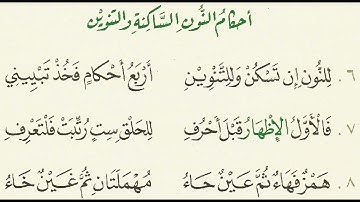 أحكام النُّون السَّاكنة والتنوين
٦. لِلنُّونِ إِن تَسْكُنْ وَلِلتَّنْوِينِ أَرْبَعُ أَحْكَامٍ فَخُذْ تَبْيِينِي
٧. فَالْأَوَّلُ الْإِظْهَارُ قَبْلَ أَحْرُفِ لِلْحَلْقِ سِتٍّ رُتِّبَتْ فَلْتَعْرِفِ
٨. هَمْزٌ فَهَاءٌ ثُمَّ عَيْنٌ حَاءُ مُهْمَلَتَانِ ثُمَّ غَيْنٌ خَاءُ